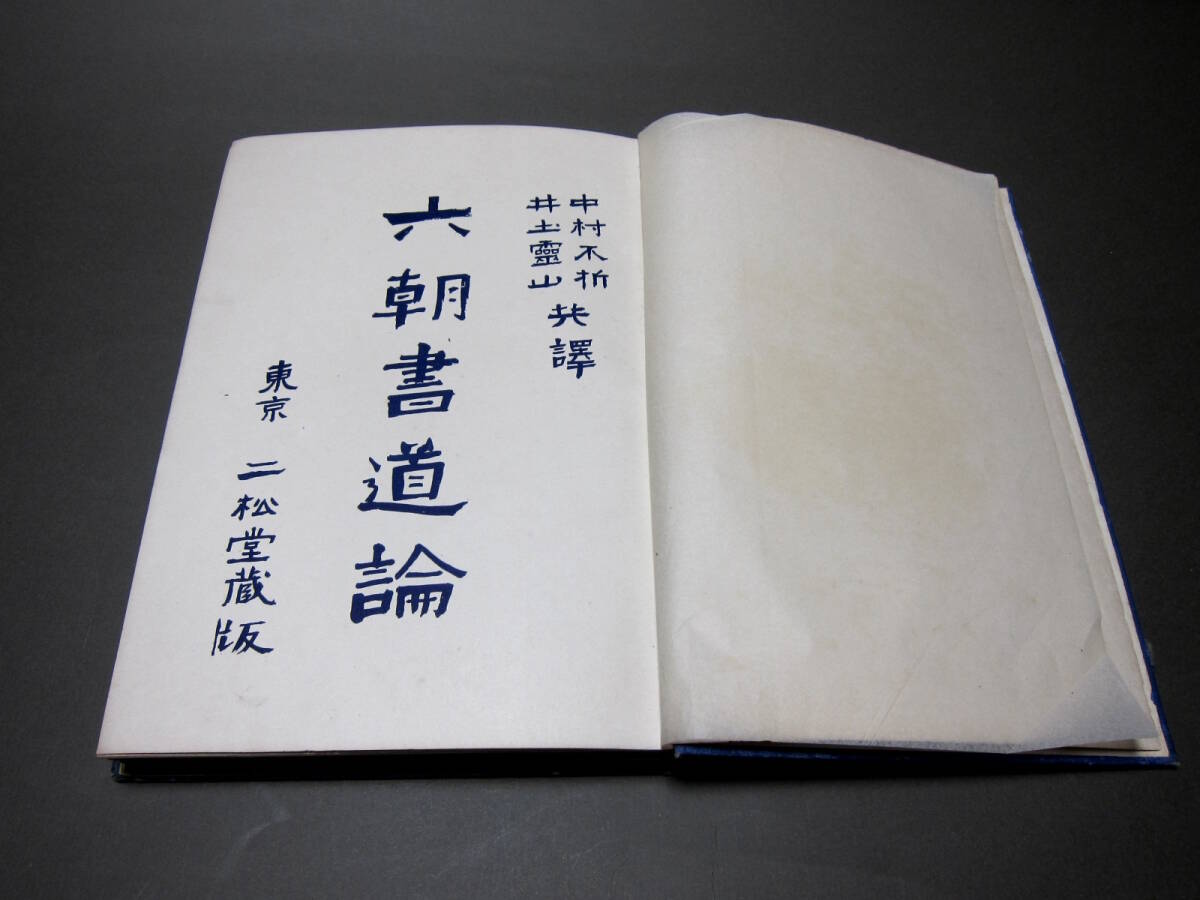 中村不折
井土靈山
共譯
六朝書道論
東京 二松堂蔵版